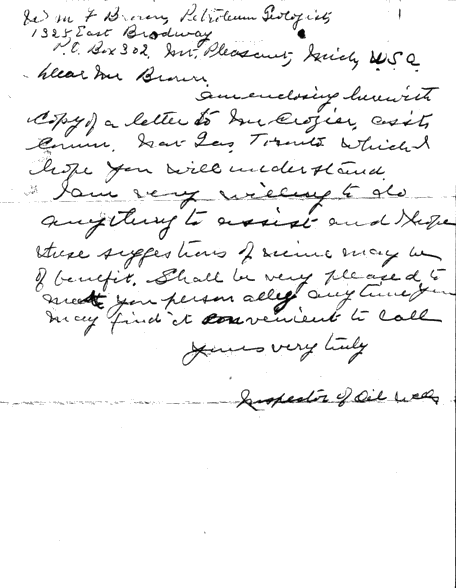 Wm F Brown, Petroleum Geologist,
1325 East Broadway
P.O. Box 302, Mt. Pleasant, Mich, U.S.A.
Dear Mr Brown,
am enclosing herewith
Copy of a letter to Mr Crozier, asst
Comm. Nat Gas, Toronto which I
hope you will understand.
I am very willing to do
anything to assist and I hope
these suggestions of mine may be
of benefit. Shall be very pleased to
meet you personally anytime you
may find it convenient to call
yours very truly
Inspector of Oil Wells